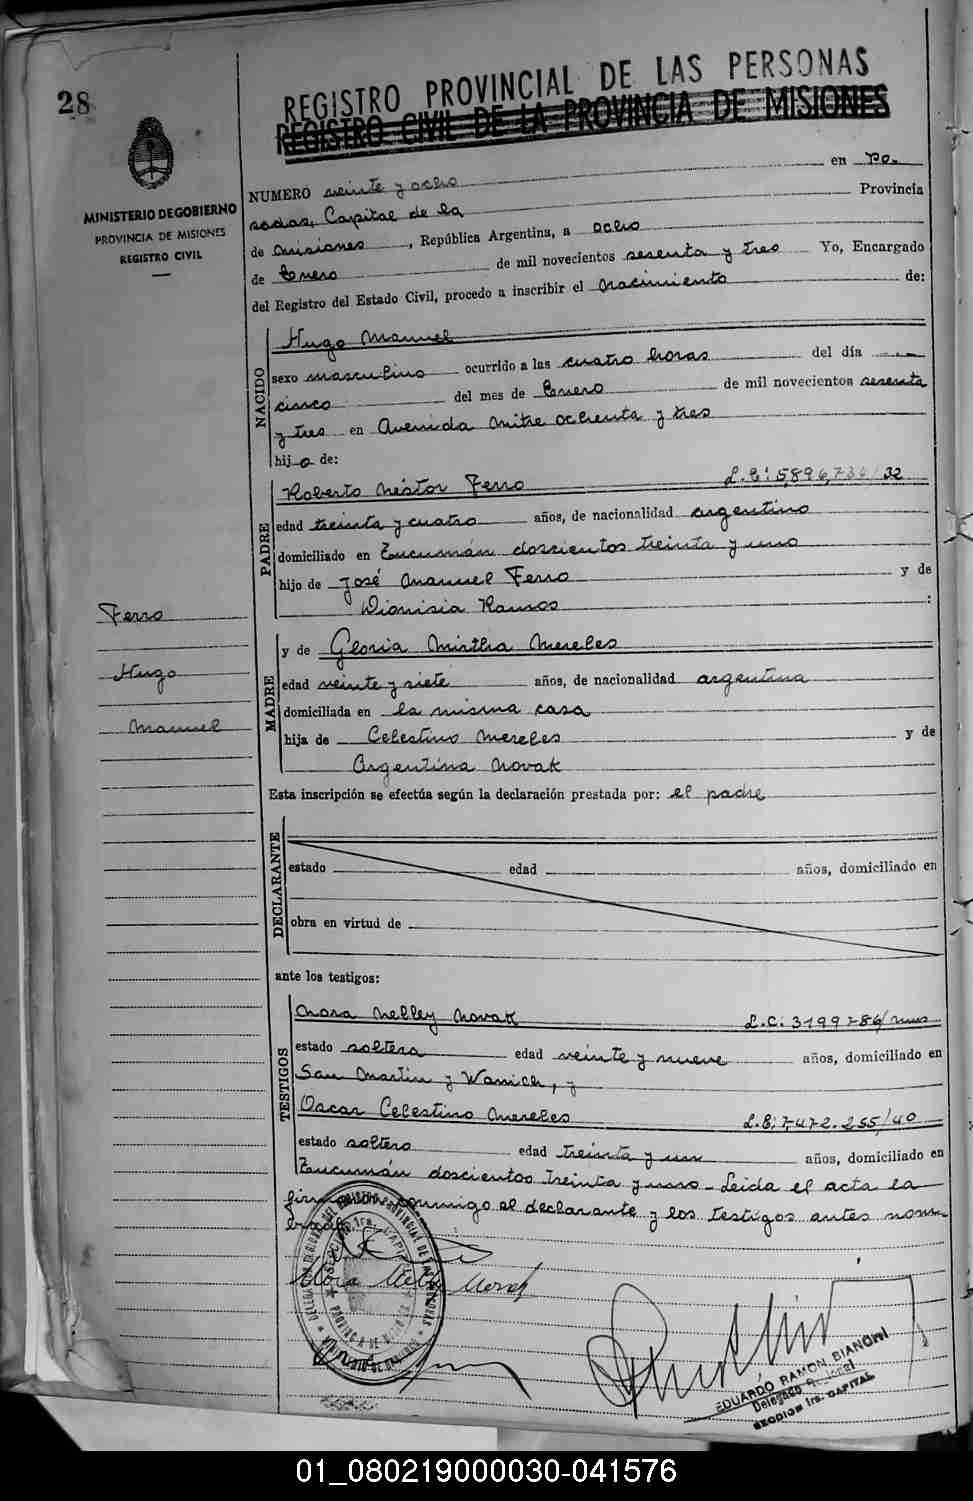 28
MINISTERIO DE GOBIERNO
PROVINCIA DE MISIONES
REGISTRO CIVIL
REGISTRO PROVINCIAL DE LAS PERSONAS
REGISTRO CIVIL DE LA PROVINCIA DE MISIONES
NUMERO veinte y ocho en Po-
sadas, Capital de la Provincia
de Misiones, República Argentina, a ocho
de Enero de mil novecientos sesenta y tres Yo, Encargado
del Registro del Estado Civil, procedo a inscribir el nacimiento de:
NACIDO
Hugo Manuel
sexo masculino ocurrido a las cuatro horas del día
cinco del mes de Enero de mil novecientos sesenta
y tres en Avenida Mitre ochenta y tres
hijo de:
PADRE
Roberto Néstor Ferro L.E: 5,896,734/32
edad treinta y cuatro años, de nacionalidad argentino
domiciliado en Tucumán doscientos treinta y uno
hijo de José Manuel Ferro y de
Dionisia Ramos :
Ferro
Hugo
Manuel
MADRE
y de Gloria Mirtha Mereles
edad veinte y siete años, de nacionalidad argentina
domiciliada en la misma casa
hija de Celestino Mereles y de
Argentina Novak
Esta inscripción se efectúa según la declaración prestada por: el padre
DECLARANTE
estado edad años, domiciliado en
obra en virtud de
ante los testigos:
TESTIGOS
Nora Nelley Novak L.C: 3199786/mns
estado soltera edad veinte y nueve años, domiciliado en
San Martin y Wanich, y
Oscar Celestino Mereles L.E: 7.472.255/40
estado soltero edad treinta y un años, domiciliado en
Tucumán doscientos treinta y uno - Leida el acta la
firman conmigo el declarante y los testigos antes nom-
brados
Nora Nelley Novak
EDUARDO RAMON BIANCHI
Delegado Regional
SECCION 1ra. CAPITAL
01_080219000030-041576